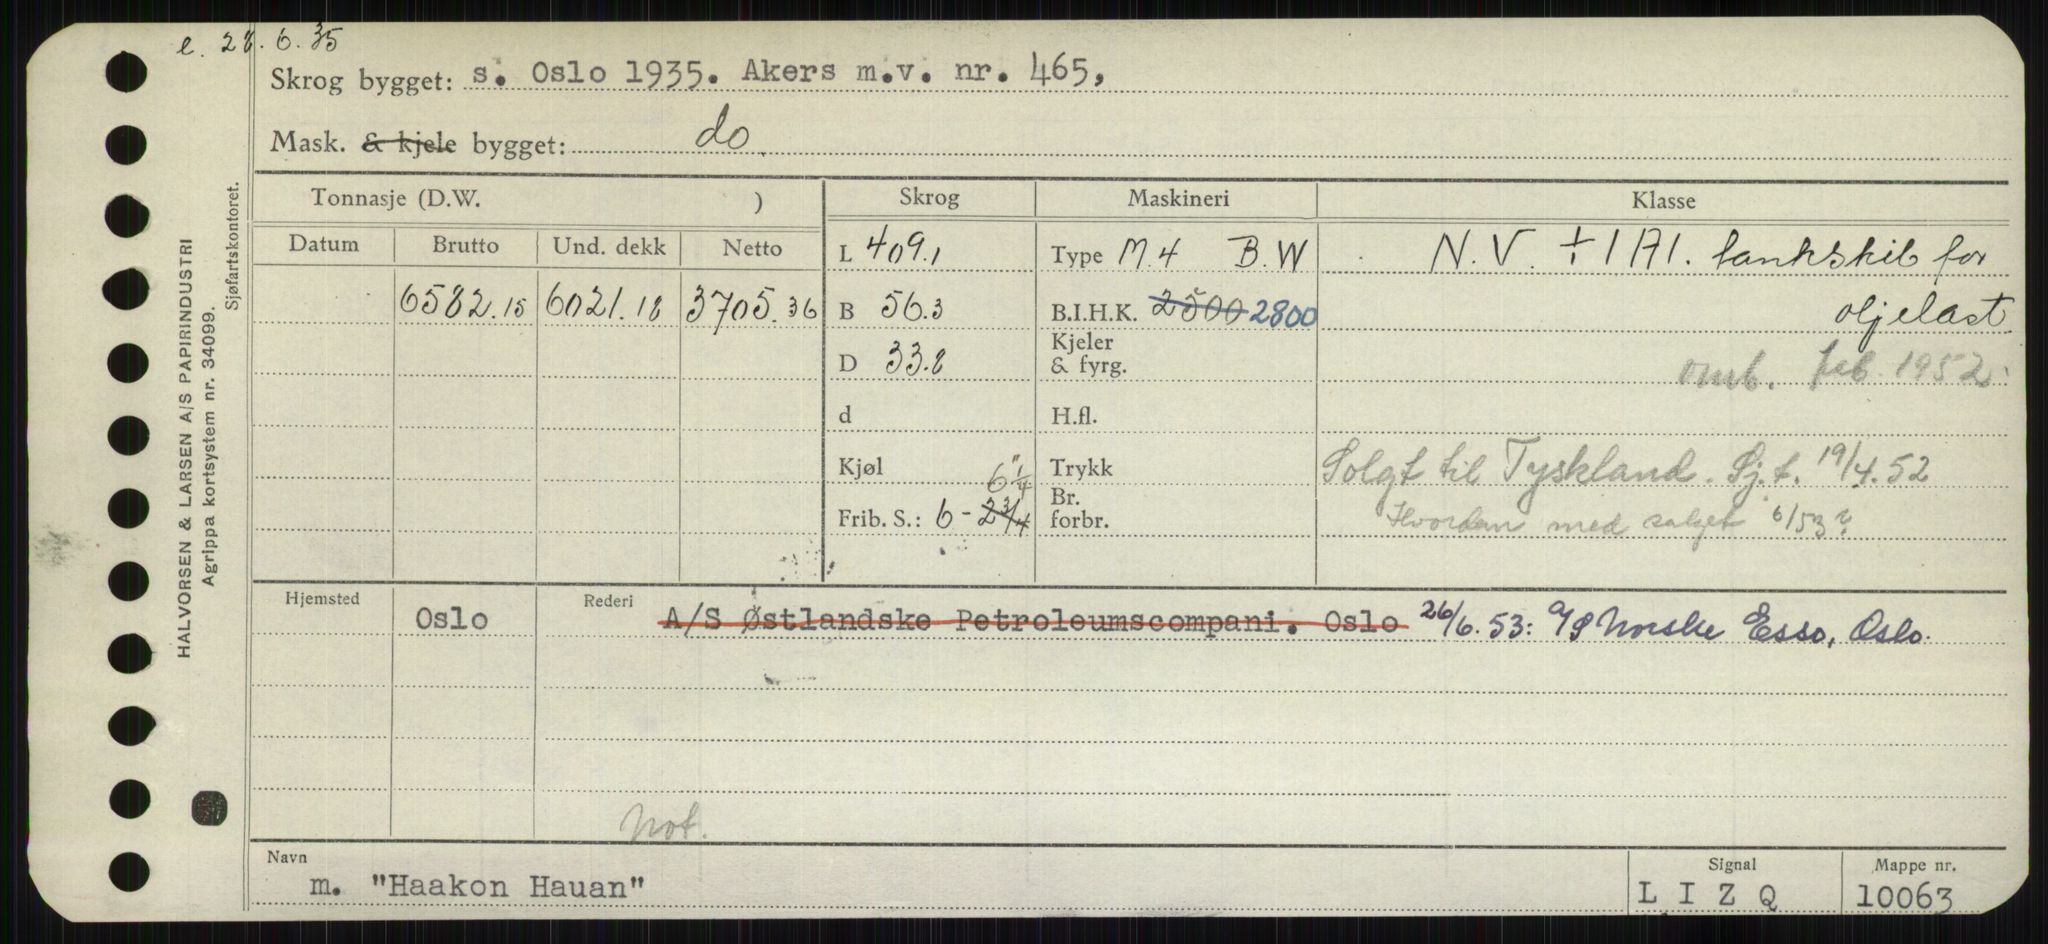 e. 28. 6. 35
Skrog bygget: s. Oslo 1935. Akers m.v. nr. 465,
Mask. & kjele bygget: do.
Tonnasje (D.W. )
Skrog
Maskineri
Klasse
Datum Brutto Und. dekk Netto
6582.15 6021.18 3705.36
L 409,1
B 56.3
D 33.8
d
Kjøl
6"1/4
Frib. S.: 6-23/4
Type M.4 B.W
B.I.H.K. 2500 2800
Kjeler
& fyrg.
H.fl.
Trykk
Br.
forbr.
N.V. ✢ 1 A1. tankskib for
oljelast
omb. feb. 1952.
Solgt til Tyskland. Sj.t. 19/4.52
Hvordan med salget 6/53?
Hjemsted Oslo
Rederi A/S Østlandske Petroleumscompani. Oslo 26/6.53: A/S Norske Esso, Oslo.
Not.
Navn
m. "Haakon Hauan"
Signal
L I Z Q
Mappe nr.
10063
HALVORSEN & LARSEN A/S PAPIRINDUSTRI
Agrippa kortsystem nr. 34099.
Sjøfartskontoret.